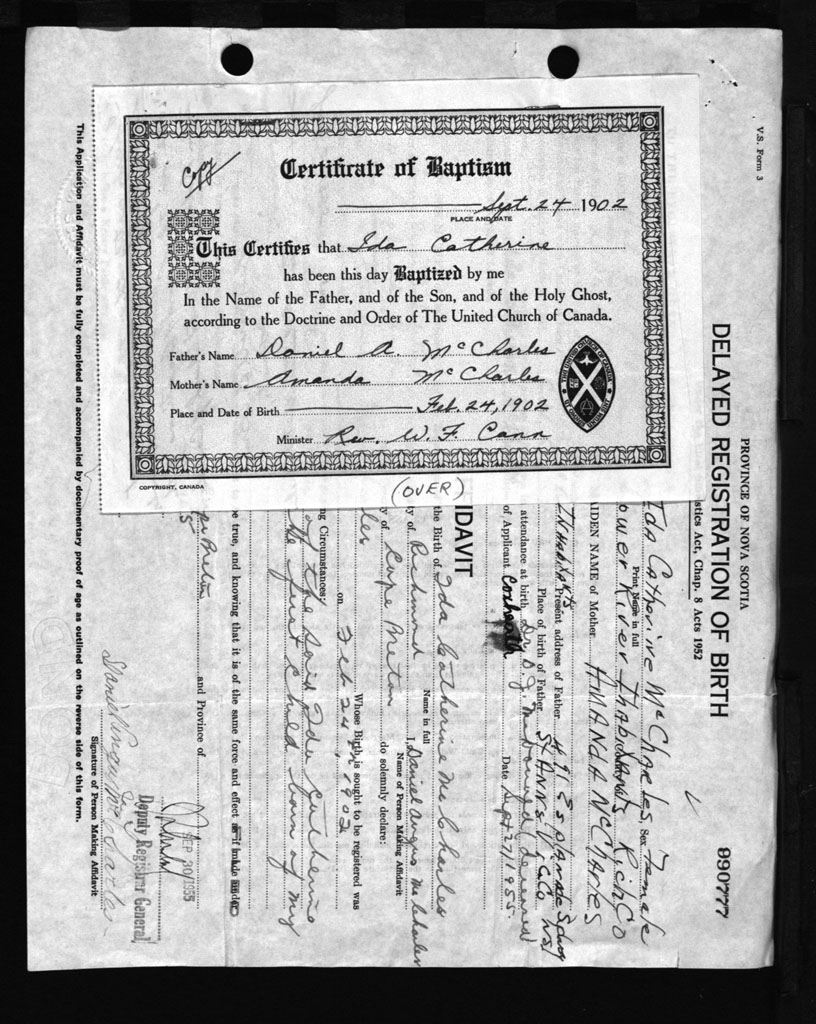 Copy
Certificate of Baptism
Sept. 24 1902
PLACE AND DATE
This Certifies that Ida Catherine
has been this day Baptized by me
In the Name of the Father, and of the Son, and of the Holy Ghost,
according to the Doctrine and Order of The United Church of Canada.
Father's Name Daniel A. McCharles
Mother's Name Amanda McCharles
Place and Date of Birth Feb. 24, 1902
Minister Rev. W. F. Cann
COPYRIGHT, CANADA
(OVER)
V.S. Form 3
PROVINCE OF NOVA SCOTIA
DELAYED REGISTRATION OF BIRTH
990777
istics Act, Chap. 8 Acts 1952
Ida Catherine McCharles, Sex Female
Print Name in full
ower River Inhabitants Rich Co
AIDEN NAME of Mother AMANDA McCharles
INHABITANTS Present address of Father 49 Esplanade Sydney
Place of birth of Father St ANNS V. C. Co NS
attendance at birth Dr. D. J. McDonald deceased
of Applicant Date Sept 27/1955
IDAVIT
I, Daniel Angus McCharles
Name of Person Making Affidavit
the Birth of Ida Catherine McCharles
Name in full
y of Richmond
y of Cape Breton do solemnly declare:
Whose Birth is sought to be registered was
on Feb 24th 1902
ng Circumstances:
of the said Ida Catherine
the first child born of my
be true, and knowing that it is of the same force and effect as if made under
and Province of
SEP 30 1955
Deputy Registrar General
Daniel Angus McCharles
Signature of Person Making Affidavit
This Application and Affidavit must be fully completed and accompanied by documentary proof of age as outlined on the reverse side of this form.